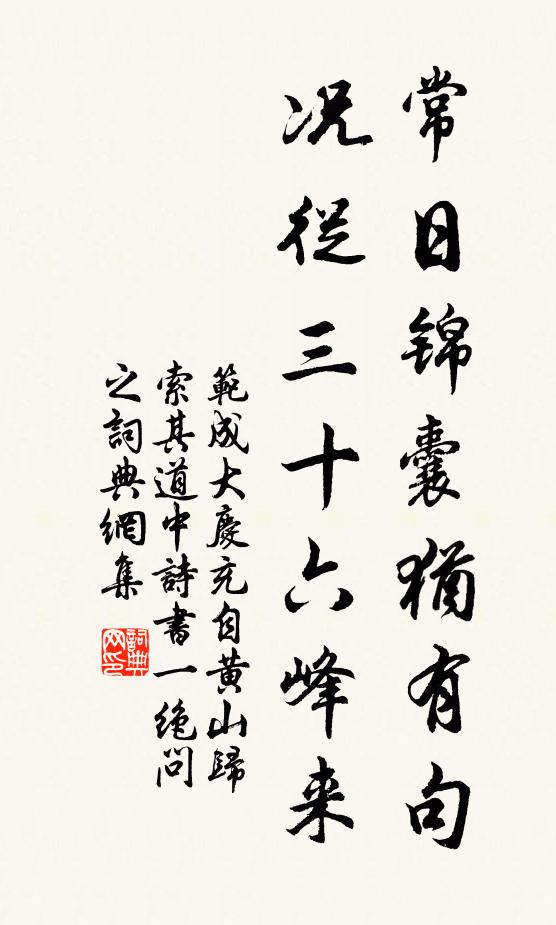 常日錦囊猶有句
況從三十六峰来
範成大慶充自黃山歸
索其道中詩書一絶問
之詞典網集
詞典网印